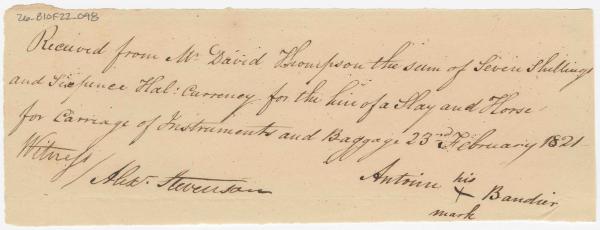 26-B10F22-098
Received from Mr David Thompson the sum of Seven Shillings
and Sixpence Hal: Currency for the hire of a Slay and Horse
for Carriage of Instruments and Baggage 23rd February 1821
Witness
Alexr Stevenson
Antoine his Bandier
X
mark